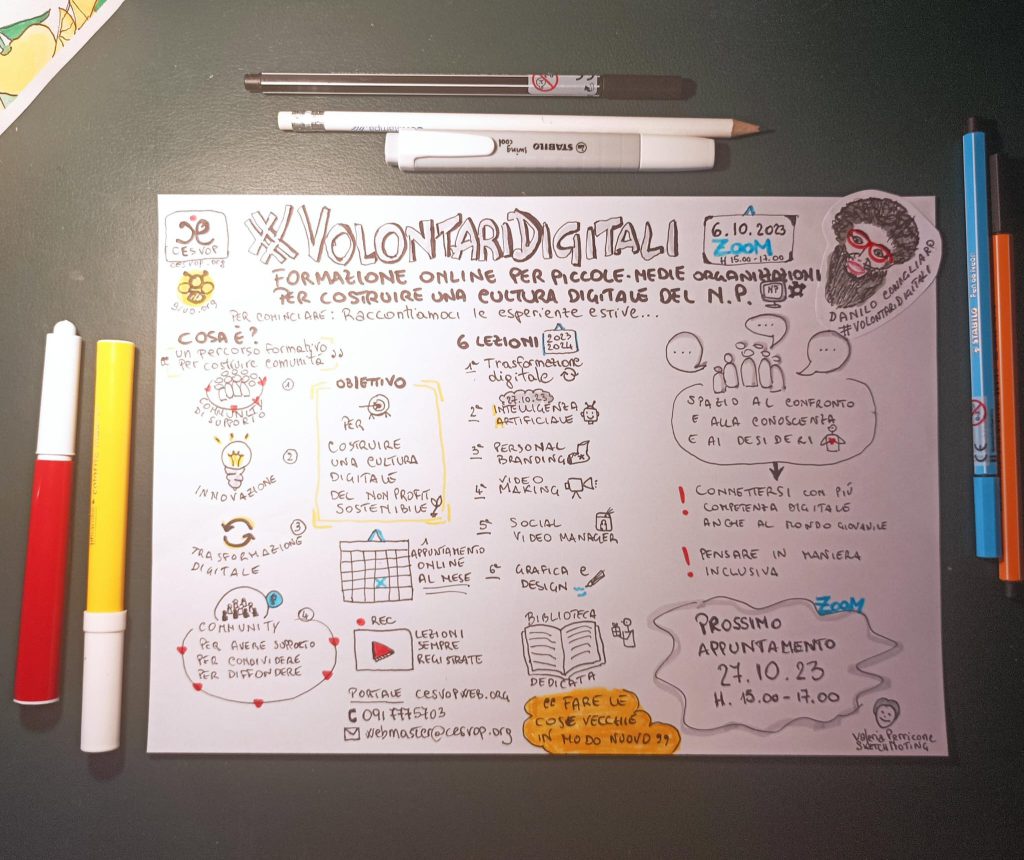 STABILO
swing cool
CESVOP
cesvop.org
givo.org
#VOLONTARIDIGITALI
6.10.2023
ZOOM
H 15.00-17.00
FORMAZIONE ONLINE PER PICCOLE-MEDIE ORGANIZZAZIONI
PER COSTRUIRE UNA CULTURA DIGITALE DEL N.P.
PER COMINCIARE: Raccontiamoci le esperienze estive...
DANILO CONIGLIARO
#VOLONTARIDIGITALI
COSA È?
"un percorso formativo
per costruire comunità"
1
COMMUNITY
DI SUPPORTO
2
INNOVAZIONE
3
TRASFORMAZIONE
DIGITALE
4
COMMUNITY
PER AVERE SUPPORTO
PER CONDIVIDERE
PER DIFFONDERE
OBIETTIVO
PER
COSTRUIRE
UNA CULTURA
DIGITALE
DEL NON PROFIT
SOSTENIBILE
1
APPUNTAMENTO
ONLINE
AL MESE
REC
LEZIONI
SEMPRE
REGISTRATE
PORTALE CESVOPWEB.ORG
091 7775703
webmaster@cesvop.org
6 LEZIONI
2023
2024
1ª Trasformazione
digitale
27.10.23
2ª INTELLIGENZA
ARTIFICIALE
3ª PERSONAL
BRANDING
4ª VIDEO
MAKING
5ª SOCIAL
VIDEO MANAGER
6ª GRAFICA e
DESIGN
BIBLIOTECA
DEDICATA
"FARE LE
COSE VECCHIE
IN MODO NUOVO"
SPAZIO AL CONFRONTO
E ALLA CONOSCENZA
E AI DESIDERI
! CONNETTERSI CON PIÚ
COMPETENZA DIGITALE
ANCHE AL MONDO GIOVANILE
! PENSARE IN MANIERA
INCLUSIVA
ZOOM
PROSSIMO
APPUNTAMENTO
27.10.23
H. 15.00-17.00
Valeria Perricone
SKETCHNOTING
STABILO Pen